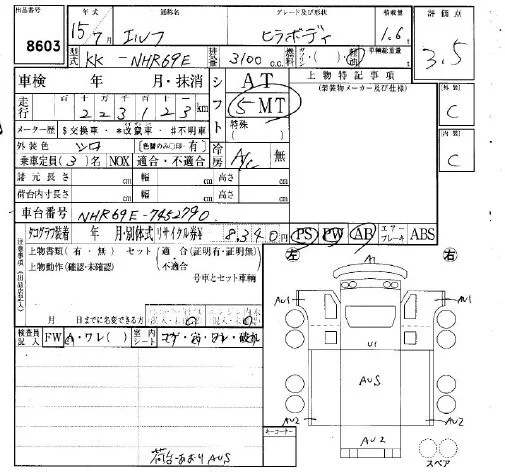 出品番号 年式 通称名 グレード及び形状 積載量 評価点
8603 15/7月 エルフ ヒラボディ 1.6t 3.5
型式 KK-NHR69E 排気量 3100c.c. 燃料 ガソリン・( )・軽油 車輌総重量
車検 年 月・抹消 シフト AT 上物特記事項 外装
走行 十 万 千 百 十 km 5MT (架装物メーカー及び仕様) C
223123
メーター歴 $交換車・*改竄車・#不明車 特殊 ( ) 内装
外装色 シロ [色替のみ○印・有] 冷房 A/C 無 C
乗車定員(3)名 NOX 適合・不適合
諸元長さ cm 幅 cm 高さ cm
荷台内寸長さ cm 幅 cm 高さ cm
車台番号 NHR69E-7452790
タコグラフ装着 年 月・別体式 リサイクル券¥ 8,340円 PS PW AB エアーブレーキ ABS
注意事項(出品店記入) 上物書類(有・無) セット(適合(証明有・証明無) 左 右
上物動作(確認・未確認) 不適合 A1
号車とセット車輌 AU1 AU1
月 日までに名変できる方 U1
検査員記入 FW A・ワレ( ) 室内シート コゲ・穴・ワレ・破れ AUS
AU2 AU2
荷台・あおりAUS キーコーナー AU2
スペア